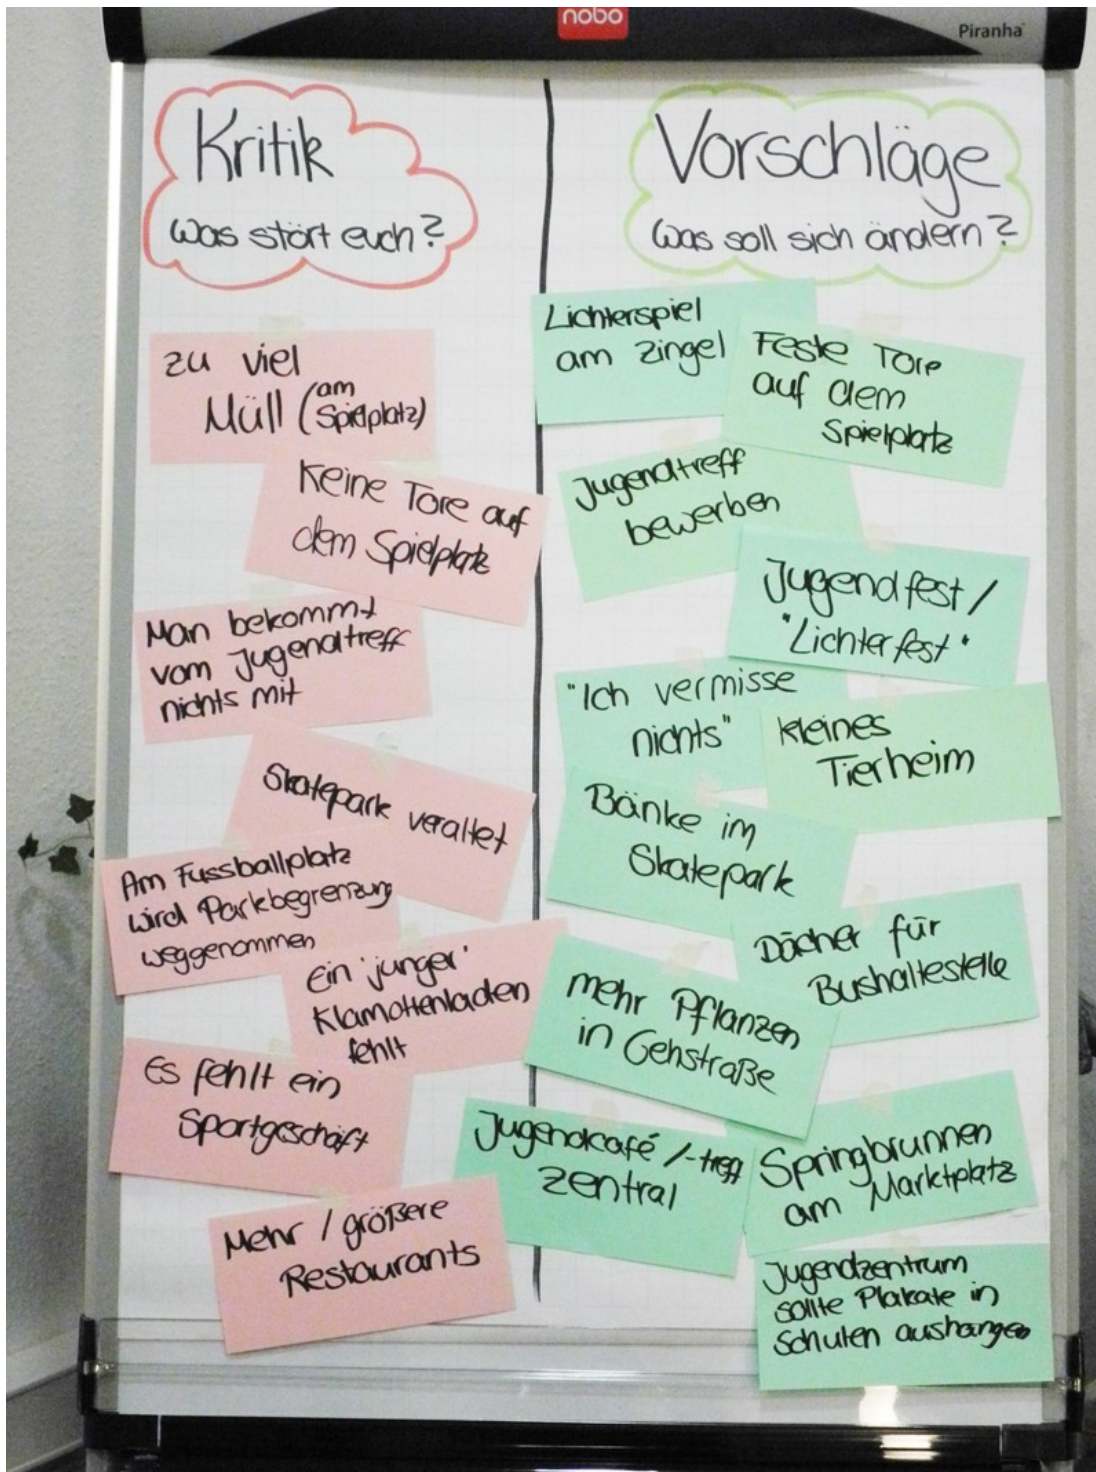 nobo
Piranha
Kritik
Was stört euch?
zu viel
Müll (am Spielplatz)
Keine Tore auf
dem Spielplatz
Man bekommt
vom Jugendtreff
nichts mit
Skatepark veraltet
Am Fussballplatz
wird Parkbegrenzung
weggenommen
Ein 'junger'
Klamottenladen
fehlt
Es fehlt ein
Sportgeschäft
Mehr / größere
Restaurants
Vorschläge
Was soll sich ändern?
Lichterspiel
am Zingel
Feste Tore
auf dem
Spielplatz
Jugendtreff
bewerben
Jugendfest /
"Lichterfest"
"Ich vermisse
nichts"
kleines
Tierheim
Bänke im
Skatepark
Dächer für
Bushaltestelle
mehr Pflanzen
in Gehstraße
Jugendcafé /-treff
zentral
Springbrunnen
am Marktplatz
Jugendzentrum
sollte Plakate in
Schulen aushängen